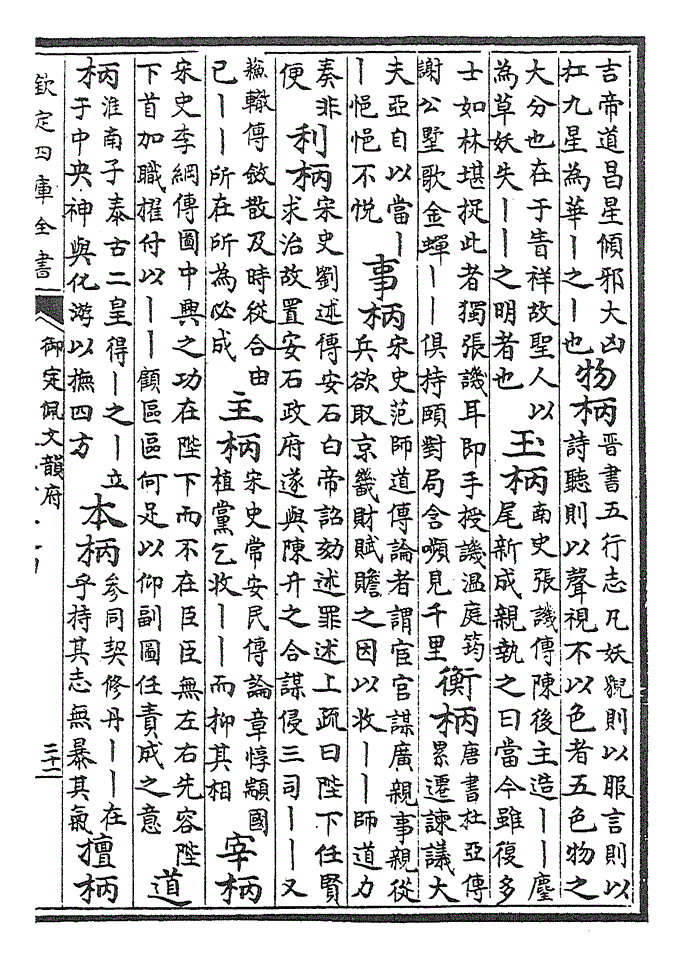 吉帝道昌星傾邪大凶
杠九星為華丨之丨也
物柄
晉書五行志凡妖貌則以服言則以
詩聽則以聲視不以色者五色物之
大分也在于眚祥故聖人以
為草妖失丨丨之明者也
玉柄
南史張譏傳陳後主造丨丨麈
尾新成親執之曰當今雖復多
士如林堪捉此者獨張譏耳即手授譏溫庭筠
謝公墅歌金蟬丨丨俱持頤對局含嚬見千里
衡柄
唐書杜亞傳
累遷諫議大
夫亞自以當丨
丨悒悒不悅
事柄
宋史范師道傳論者謂宦官謀廣親事親從
兵欲取京畿財賦贍之因以收丨丨師道力
奏非
便
利柄
宋史劉述傳安石白帝詔劾述罪述上疏曰陛下任賢
求治故置安石政府遂與陳升之合謀侵三司丨丨又
蘇轍傳斂散及時從合由
已丨丨所在所為必成
主柄
宋史常安民傳論章惇顓國
植黨乞收丨丨而抑其相
宰柄
宋史李綱傳圖中興之功在陛下而不在臣臣無左右先容陛
下首加職擢付以丨丨顧區區何足以仰副圖任責成之意
道
柄
淮南子泰古二皇得丨之丨立
于中央神與化游以撫四方
本柄
參同契修丹丨丨在
乎持其志無暴其氣
擅柄
欽定四庫全書
御定佩文韻府
二十二